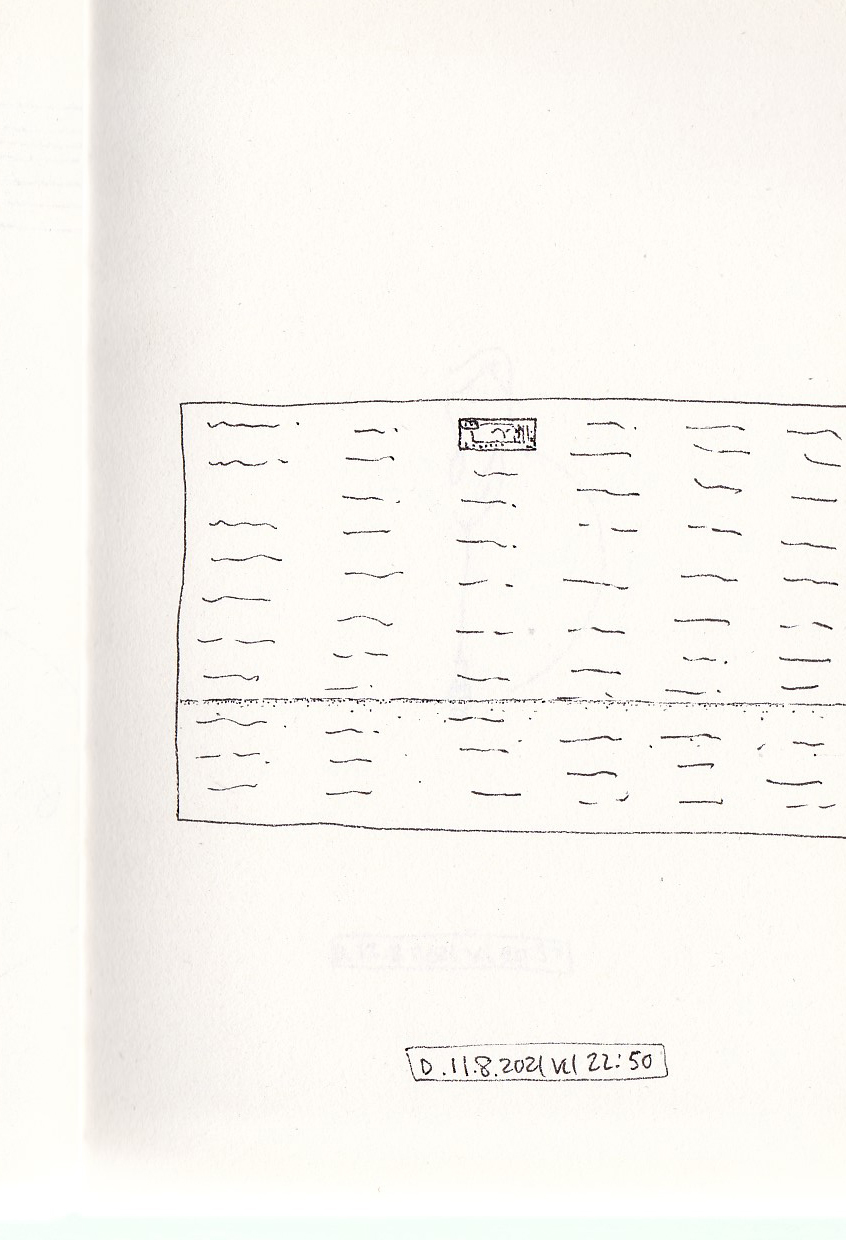 D. 11.8.2021 kl 22:50